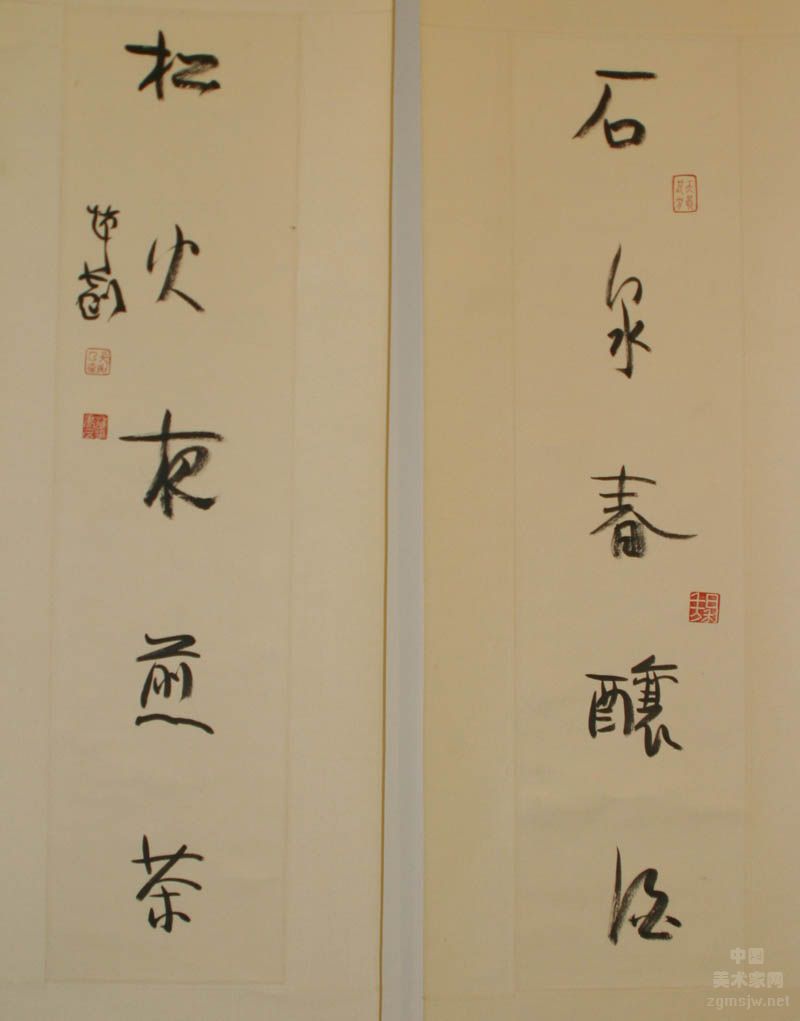 石泉春釀酒
松火夜煎茶
中国
美术家网
zgmsjw.net